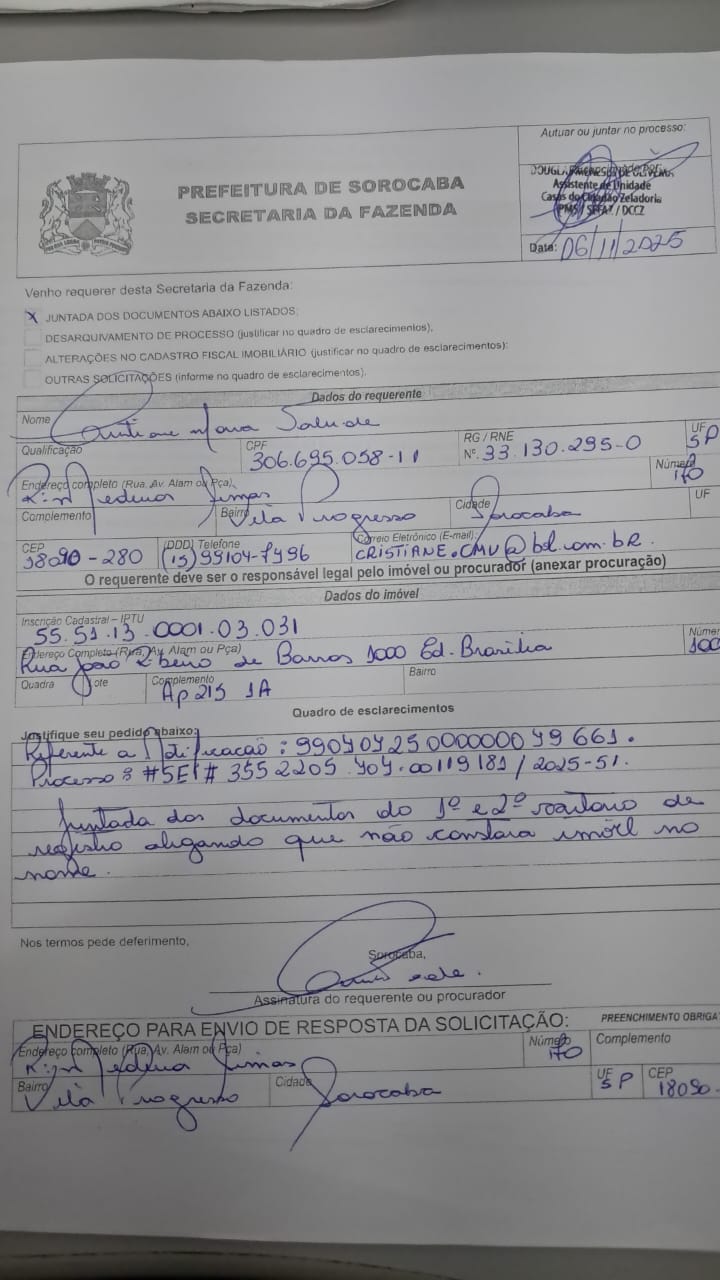 Autuar ou juntar no processo:
Assistente de Unidade
Casas do Cidadão/Zeladoria
PMS / SEFAZ / DCCZ
PREFEITURA DE SOROCABA
SECRETARIA DA FAZENDA
Data: 06/11/2025
Venho requerer desta Secretaria da Fazenda:
X JUNTADA DOS DOCUMENTOS ABAIXO LISTADOS;
DESARQUIVAMENTO DE PROCESSO (justificar no quadro de esclarecimentos),
ALTERAÇÕES NO CADASTRO FISCAL IMOBILIÁRIO (justificar no quadro de esclarecimentos):
OUTRAS SOLICITAÇÕES (informe no quadro de esclarecimentos).
Dados do requerente
Nome
Qualificação CPF 306.695.058-11 RG / RNE Nº. 33.130.295-0 UF SP
Endereço completo (Rua, Av. Alam ou Pça). Número 170
Complemento Bairro Vila Progresso Cidade Sorocaba UF
CEP 18090-280 (DDD) Telefone (15) 99104-7496 Correio Eletrônico (E-mail): CRISTIANE.CMV@bol.com.bR.
O requerente deve ser o responsável legal pelo imóvel ou procurador (anexar procuração)
Dados do imóvel
Inscrição Cadastral – IPTU
55.51.13.0001.03.031
Endereço Completo (Rua, Av. Alam ou Pça) Númer
Rua João Ribeiro de Barros 1000 Ed. Brasilia 100
Quadra Lote Complemento Ap 215 1A Bairro
Quadro de esclarecimentos
Justifique seu pedido abaixo:
Referente a Notificação: 99040425000000049661.
Processo: #SEI# 3552205.404.00119181/2025-51.
Juntada dos documentos do 1º e 2º cartorio de
registro alegando que não constara imóvl no
nome.
Nos termos pede deferimento,
Sorocaba,
Assinatura do requerente ou procurador
ENDEREÇO PARA ENVIO DE RESPOSTA DA SOLICITAÇÃO: PREENCHIMENTO OBRIGA
Endereço completo (Rua, Av. Alam ou Pça) Número 170 Complemento
Bairro Vila Progresso Cidade Sorocaba UF SP CEP 18090-